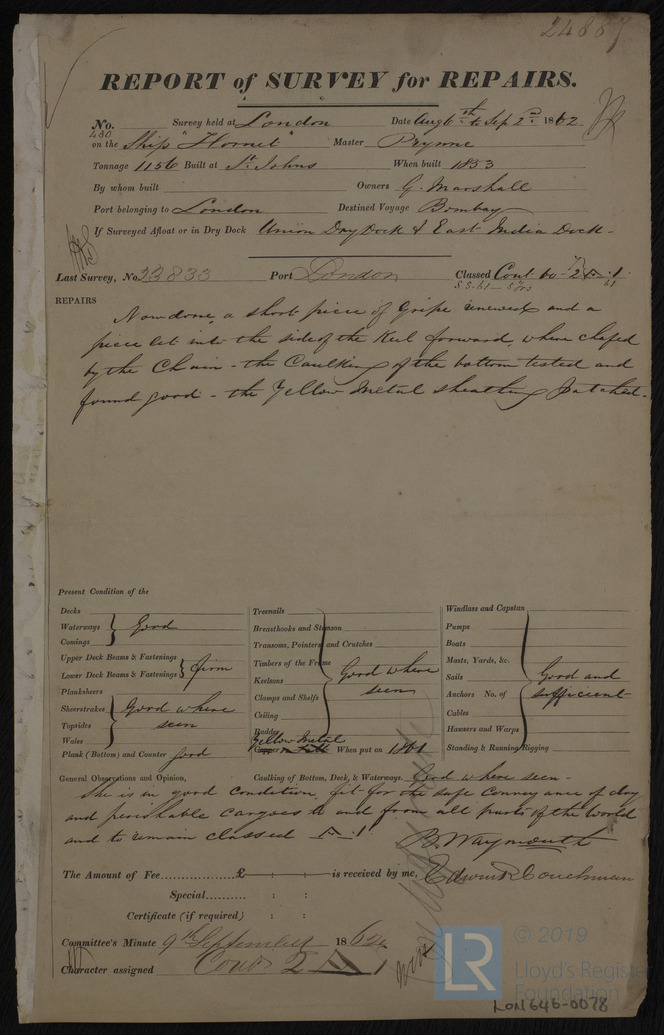 24887
REPORT of SURVEY for REPAIRS.
No. 480 Survey held at London Date Aug 6th to Sep 2nd 1862
on the Ship "Hornet" Master Prynne
Tonnage 1156 Built at St. Johns When built 1853
By whom built Owners G. Marshall
Port belonging to London Destined Voyage Bombay
If Surveyed Afloat or in Dry Dock Union Dry Dock & East India Dock -
Last Survey, No 33833 Port London Classed Cont 60 - 2 A 1
S.S. 61 - 5 Yrs 61
REPAIRS
Now done, a short piece of Gripe renewed and a
piece let into the side of the Keel forward, where chafed
by the Chain - the Caulking of the bottom tested and
found good - the Yellow Metal sheathing patched -
Present Condition of the
Decks
Waterways Good
Comings
Upper Deck Beams & Fastenings
Lower Deck Beams & Fastenings firm
Planksheers
Sheerstrakes Good where
Topsides seen
Wales
Plank (Bottom) and Counter good
Treenails
Breasthooks and Stemson
Transoms, Pointers and Crutches
Timbers of the Frame
Keelsons Good where
Clamps and Shelfs seen
Ceiling
Rudder
Yellow Metal
Copper When put on 1861
Windlass and Capstan
Pumps
Boats
Masts, Yards, &c.
Sails Good and
Anchors No. of sufficient
Cables
Hawsers and Warps
Standing & Running Rigging
General Observations and Opinion, Caulking of Bottom, Deck, & Waterways. Good where seen -
She is in good condition, fit for the safe conveyance of dry
and perishable cargoes to and from all parts of the World
and to remain classed A 1
B. Waymouth
The Amount of Fee £ : : is received by me, Edwin R Couchman
Special : :
Certificate (if required) : :
Committee's Minute 9th September 1862
Character assigned Cont 2 A 1
LR © 2019
Lloyd's Register
Foundation
LON646-0078